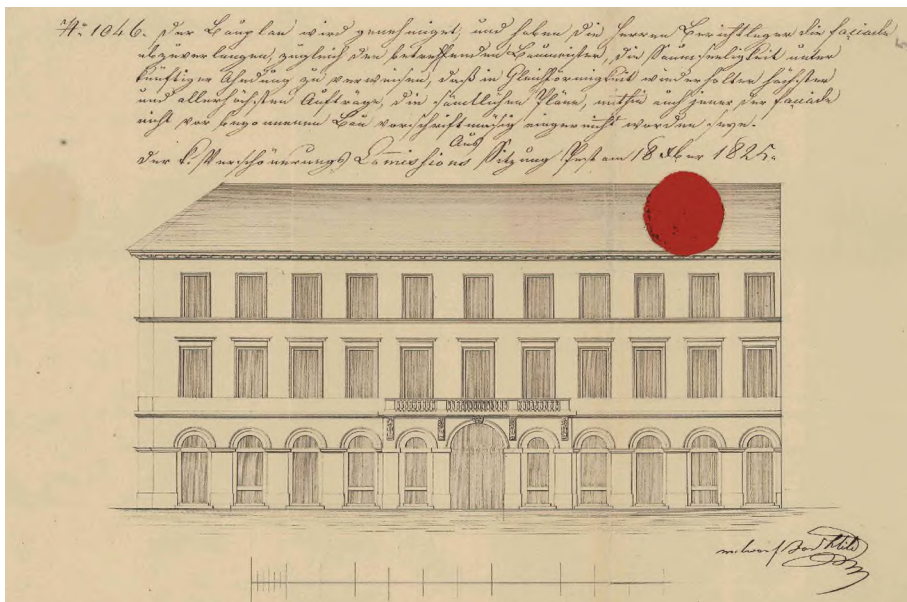 No 1046. Der Bauplan wird genehmiget, und haben die Herren Berichtleger die façiade
abzuverlangen, zugleich den betreffenden Baumeister, die Saumseeligkeit unter
künftiger Ahndung zu verweisen, daß in Gleichförmigkeit wiederholten höchster
und allerhöchsten Aufträge, die sämtlichen Pläne, mithin auch jener der façiade
nicht vor begonnenen Bau vorschriftmäßig eingereicht worden seye.
Aus
Der k. Verschönerungs Commissions Sitzung Pest am 18 ber 1825.